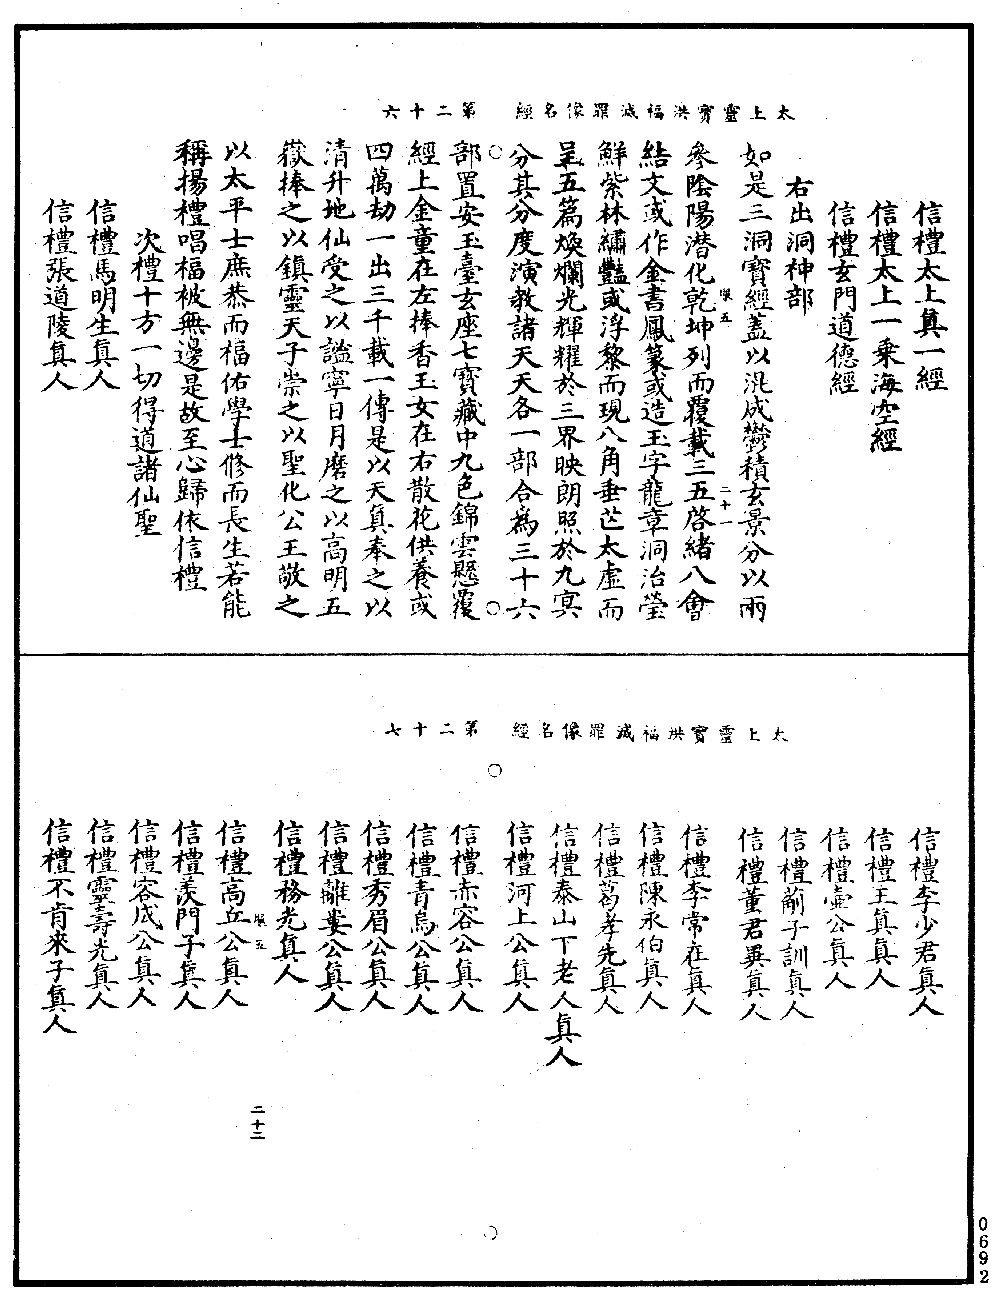 太上靈寳洪福滅罪像名經　第二十六
信禮太上眞一經
信禮太上一乗海空經
信禮玄門道德經
右出洞神部
如是三洞寳經蓋以混成欝積玄景分以兩
叅陰陽潛化乾坤列而覆載三五啓緒八會
結文或作金書鳳篆或造玉字龍章洞治瑩
鮮紫林繡豔或浮黎而現八角垂芒太虛而
呈五篇煥爛光輝耀於三界映朗照於九㝠
分其分度演教諸天天各一部合爲三十六
部置安玉臺玄座七寳藏中九色錦雲懸覆
經上金童在左捧香玉女在右散花供養或
四萬劫一出三千載一傳是以天眞奉之以
清升地仙受之以謐寧日月磨之以高明五
嶽捧之以鎮靈天子崇之以聖化公王敬之
以太平士庶恭而福佑學士修而長生若能
稱揚禮唱福被無邊是故至心歸依信禮
次禮十方一切得道諸仙聖
信禮馬明生眞人
信禮張道陵眞人
二十一
太上靈寳洪福滅罪像名經　第二十七
信禮李少君眞人
信禮王真眞人
信禮壷公眞人
信禮薊子訓眞人
信禮董君異眞人
信禮李常在眞人
信禮陳永伯眞人
信禮葛孝先眞人
信禮泰山下老人眞人
信禮河上公眞人
信禮赤容公眞人
信禮青烏公眞人
信禮秀眉公眞人
信禮離婁公眞人
信禮務光眞人
信禮高丘公眞人
信禮羨門子眞人
信禮容成公眞人
信禮靈壽光眞人
信禮不肯來子眞人
二十二
0692